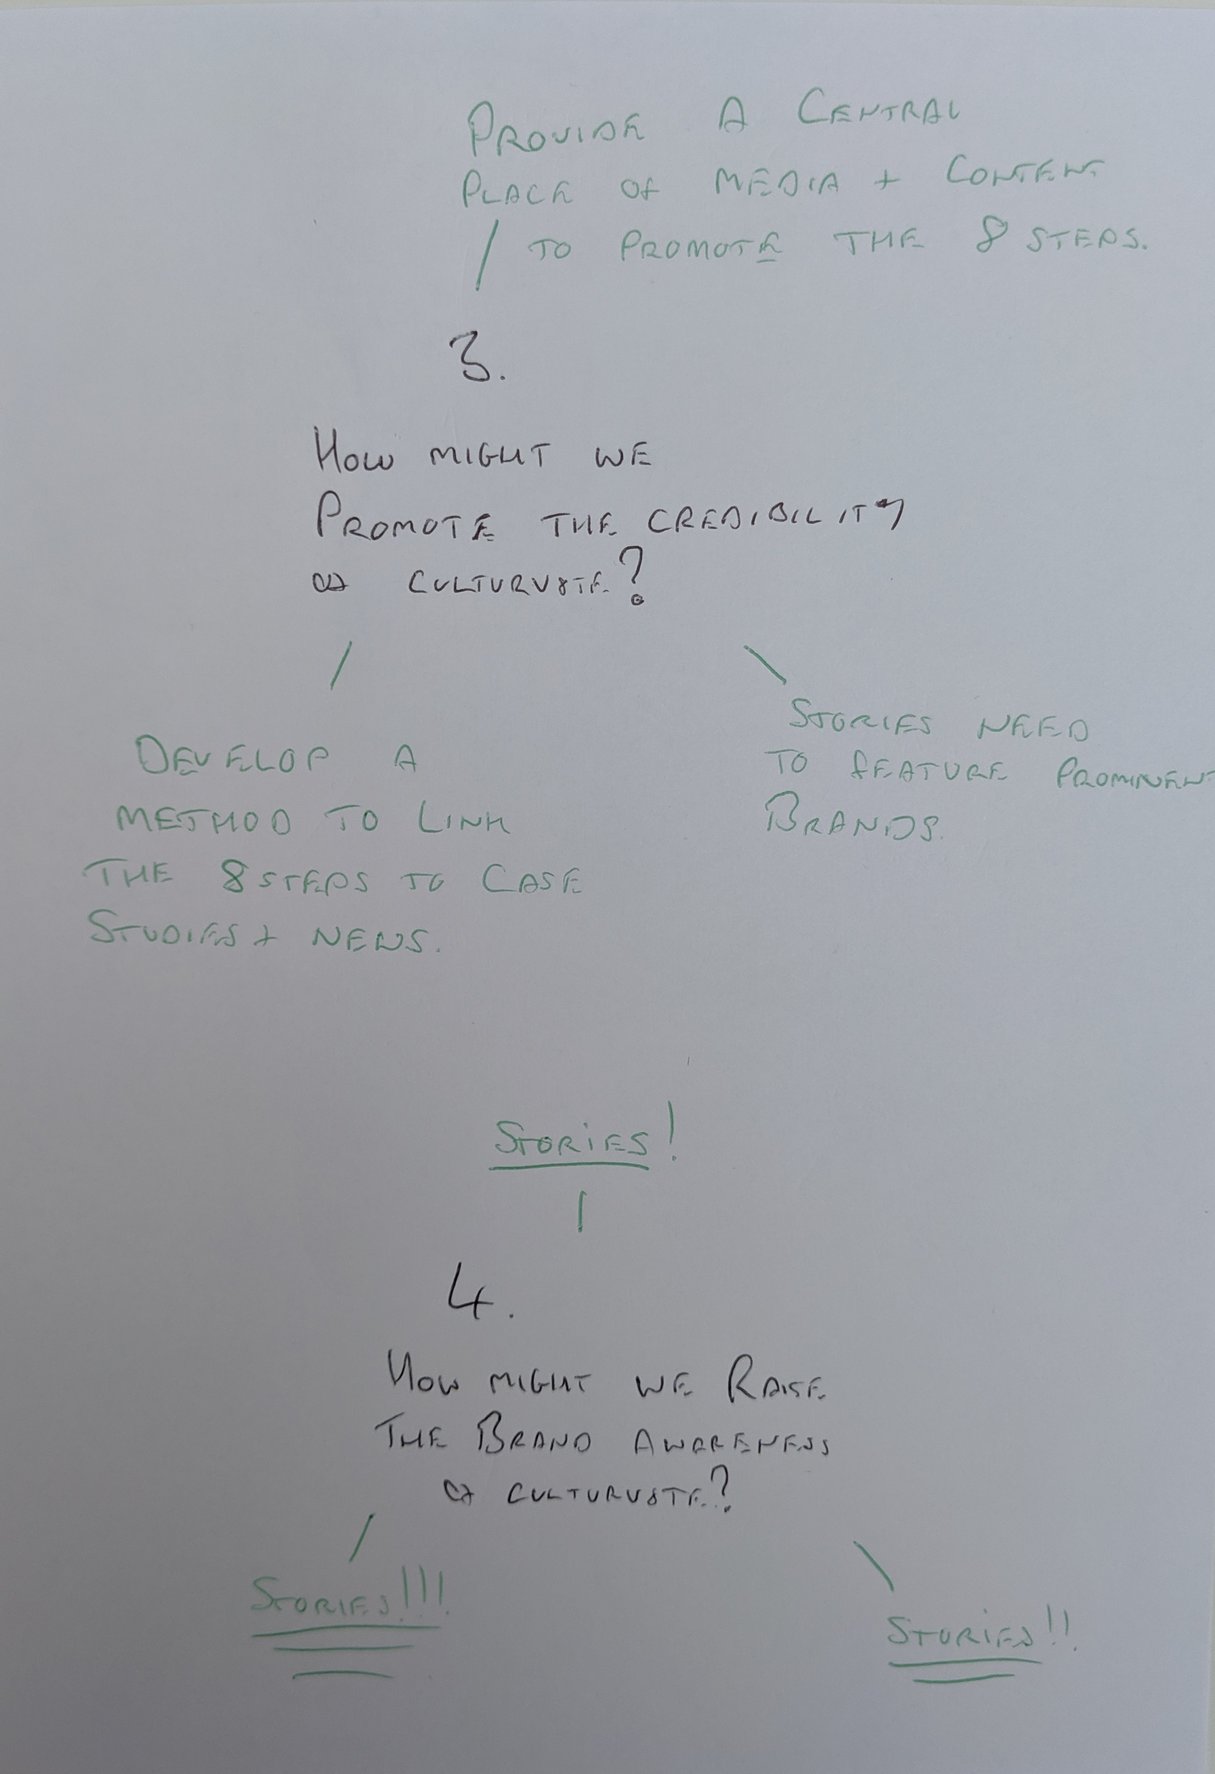 PROVIDE A CENTRAL
PLACE OF MEDIA + CONTENT
TO PROMOTE THE 8 STEPS.
3.
HOW MIGHT WE
PROMOTE THE CREDIBILITY
OF CULTURV8TE?
DEVELOP A
METHOD TO LINK
THE 8 STEPS TO CASE
STUDIES + NEWS.
STORIES NEED
TO FEATURE PROMINENT
BRANDS.
STORIES!
4.
HOW MIGHT WE RAISE
THE BRAND AWARENESS
OF CULTURV8TE?
STORIES!!!
STORIES!!